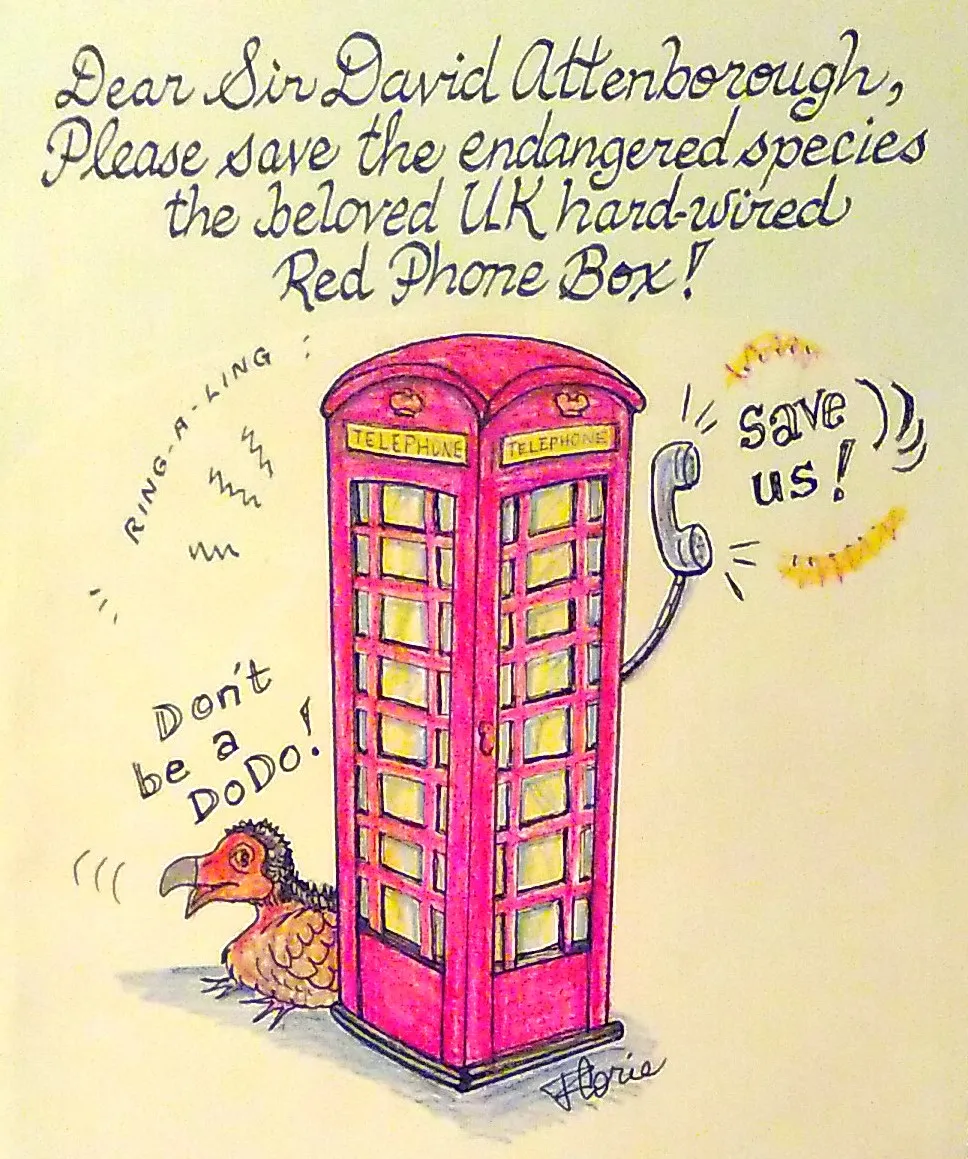 Dear Sir David Attenborough,
Please save the endangered species
the beloved UK hard-wired
Red Phone Box!
RING-A-LING
TELEPHONE
TELEPHONE
save
us!
Don't
be a
DoDo!